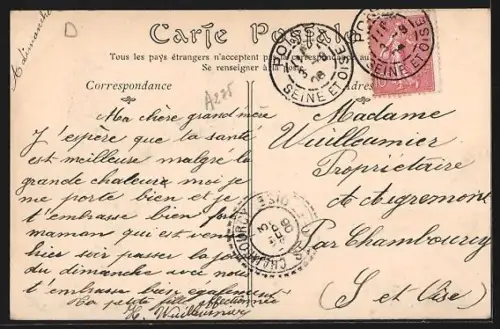 D
à dimanche
Carte Postale
Tous les pays étrangers n'acceptent pas
Se renseigner à la
Correspondance
Adresse
A275
POISSY
SEINE ET OISE
POISSY
SEINE ET OISE
Ma chère grand mère
J'espère que ta santé
est meilleure malgré la
grande chaleur moi je
me porte bien et je
t'embrasse bien fort
maman qui est venue
hier soir passer la journée
du dimanche avec nous
t'embrasse bien également
Ta petite fille affectionnée
H. Wuilleumier
Madame
Wuilleumier
Propriétaire
à Aigremont
Par Chambourcy
(S et Oise)